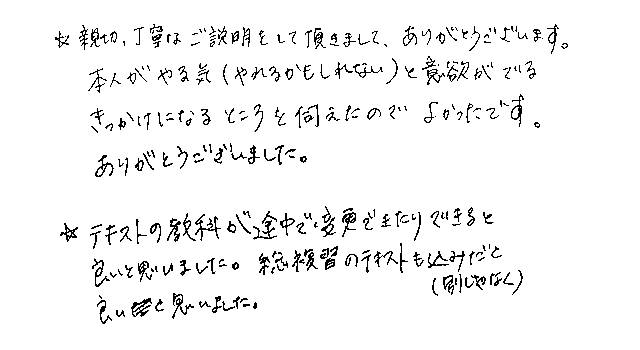 ☆ 親切、丁寧なご説明をして頂きまして、ありがとうございます。
本人がやる気(やれるかもしれない)と意欲がでる
きっかけになるところを伺えたのでよかったです。
ありがとうございました。
☆ テキストの教科が途中で変更できたりできると
良いと思いました。総複習のテキストも込みだと
(別じゃなく)
良いと思いました。